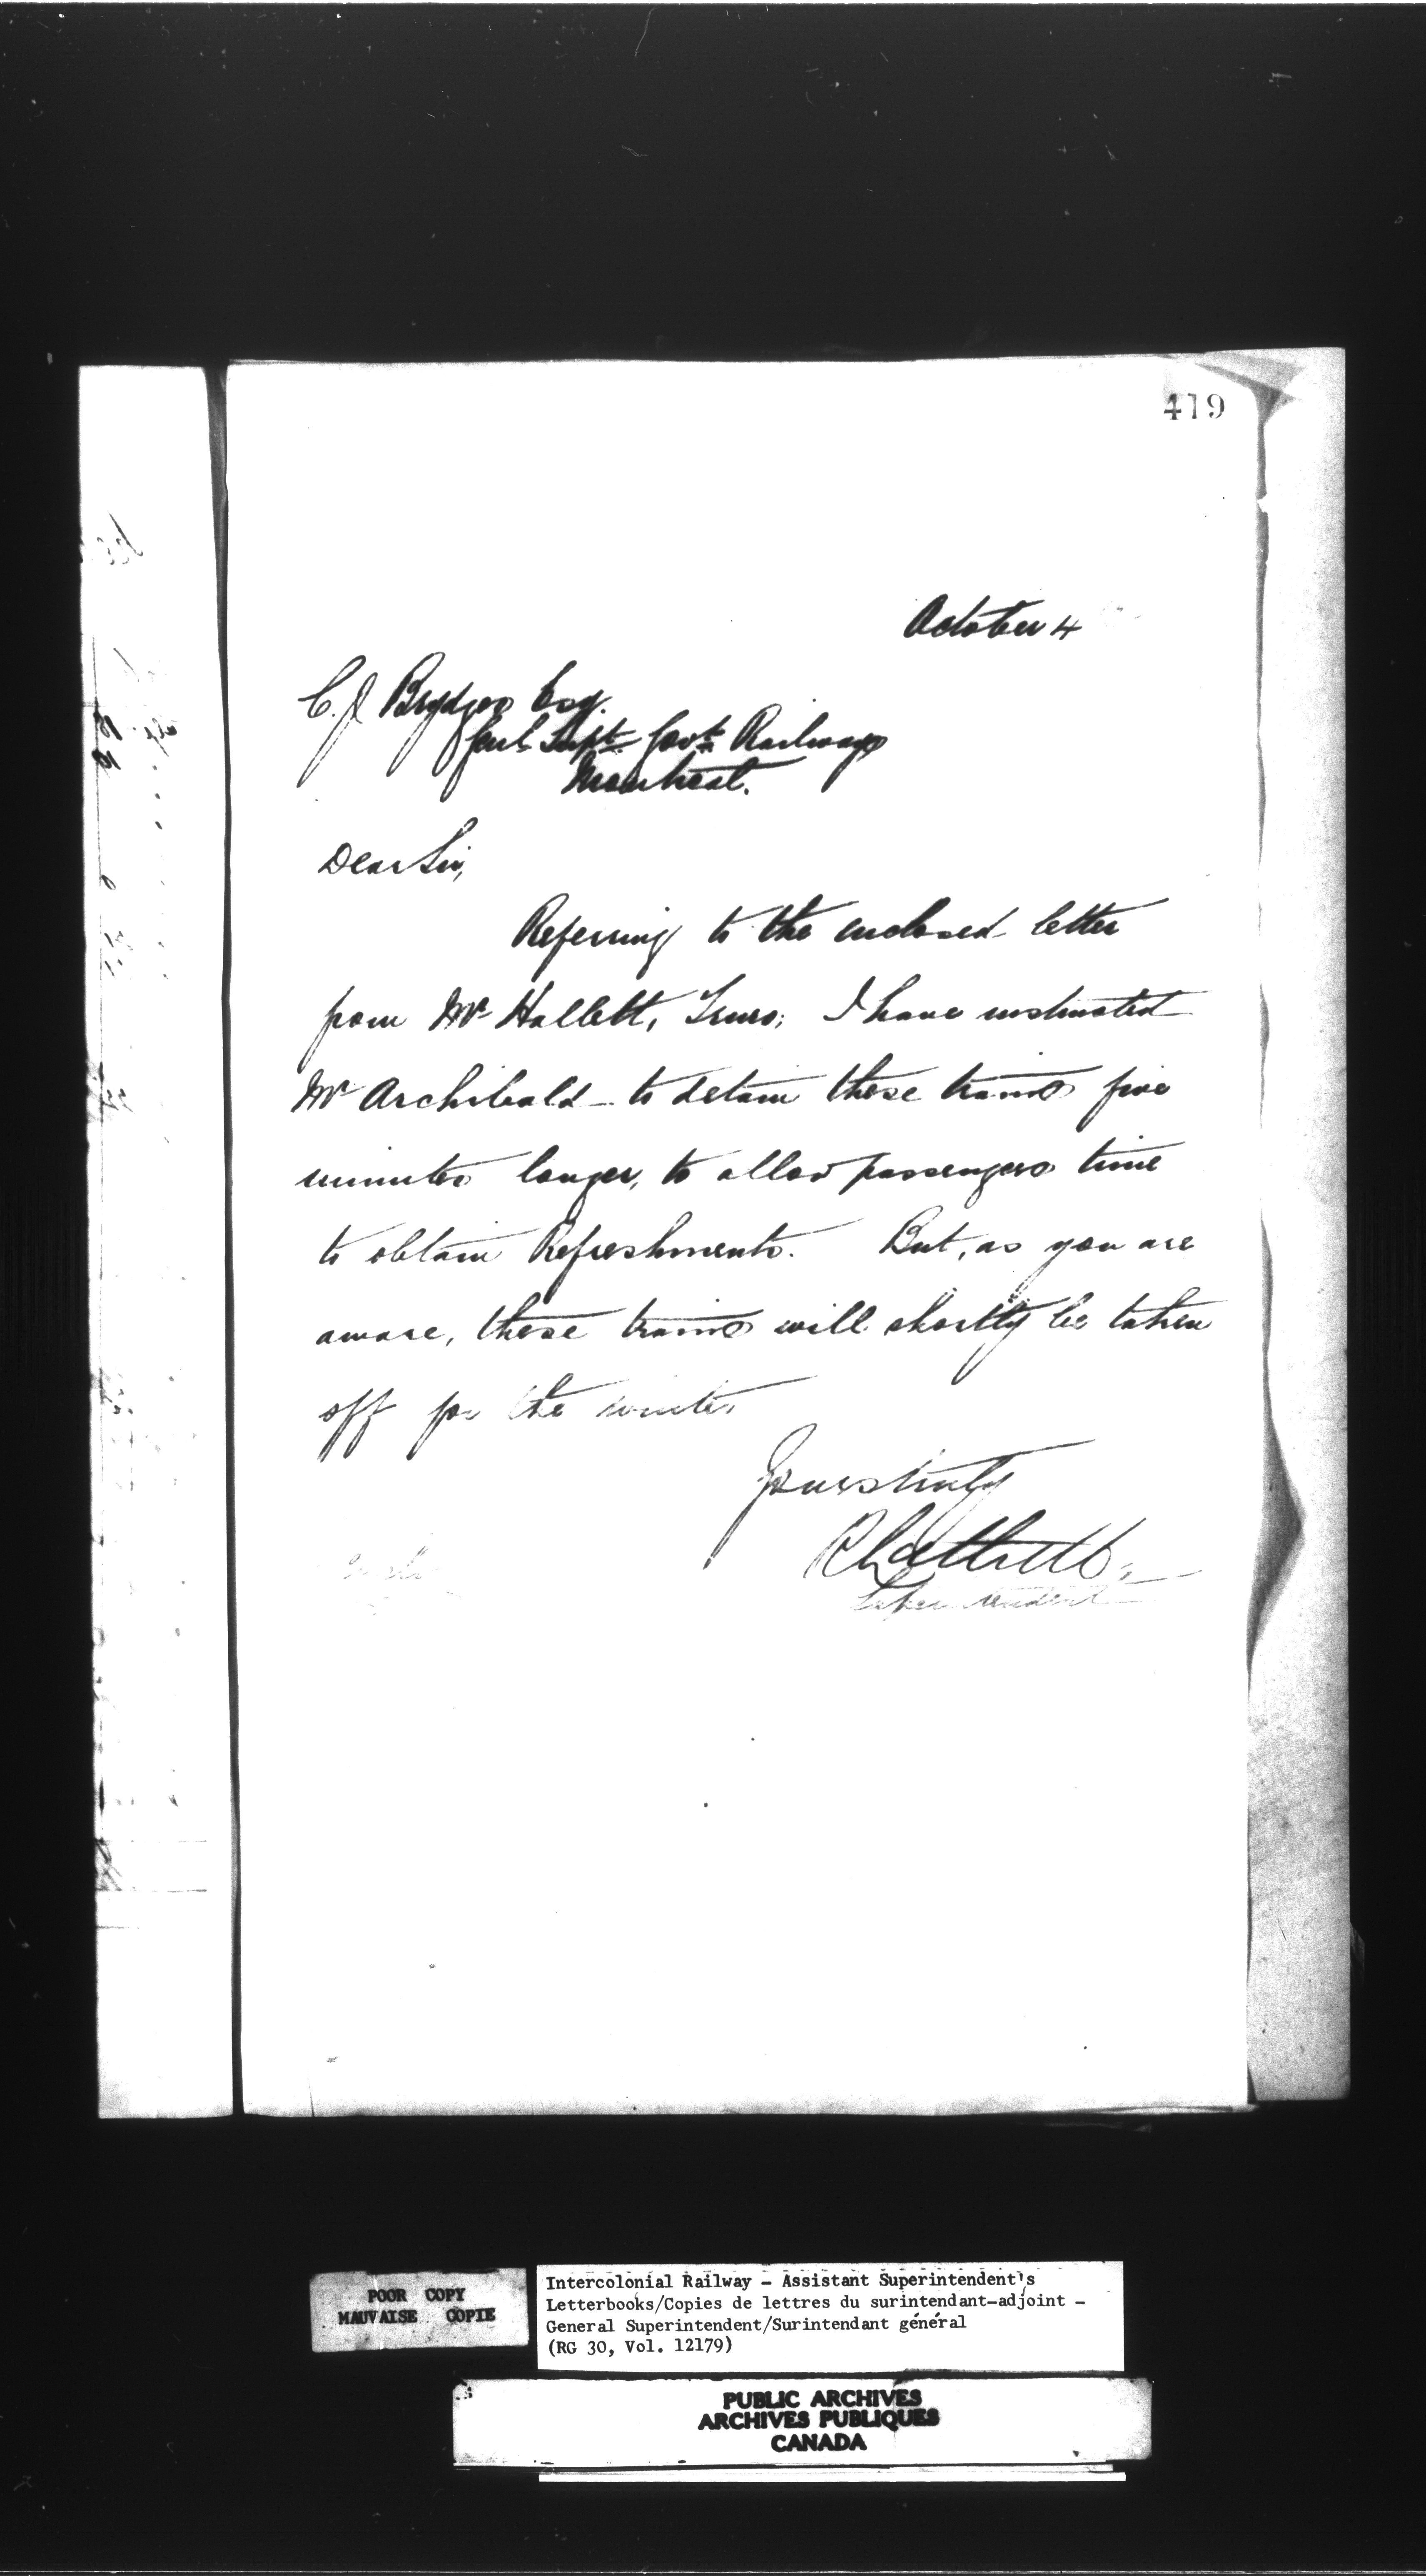 419
October 4
C. J. Brydges Esq.
Genl Supt Govt Railways
Montreal.
Dear Sir,
Referring to the enclosed letter
from Mr Hallett, Truro; I have instructed
Mr Archibald to detain these trains five
minutes longer, to allow passengers time
to obtain Refreshments. But, as you are
aware, these trains will shortly be taken
off for the winter
Yours truly
Superintendent
POOR COPY
MAUVAISE COPIE
Intercolonial Railway - Assistant Superintendent's
Letterbooks/Copies de lettres du surintendant-adjoint -
General Superintendent/Surintendant général
(RG 30, Vol. 12179)
PUBLIC ARCHIVES
ARCHIVES PUBLIQUES
CANADA